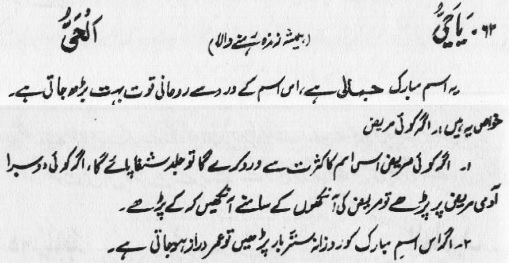 ۶۲۔ یَاحَیُّ (ہمیشہ زندہ رہنے والا) اَلْحَیُّ
یہ اسم مبارک جمالی ہے، اس اسم کے ورد سے روحانی قوت بہت بڑھ جاتی ہے۔
خواص یہ ہیں:۔ اگر کوئی مریض
۱۔ اگر کوئی مریض اس اسم کا کثرت سے ورد کرے گا تو جلد شفا پائے گا، اگر کوئی دوسرا
آدمی مریض پر پڑھے تو مریض کی آنکھوں کے سامنے آنکھیں کر کے پڑھے۔
۲۔ اگر اس اسم مبارک کو روزانہ ستّر بار پڑھیں تو عمر دراز ہو جاتی ہے۔